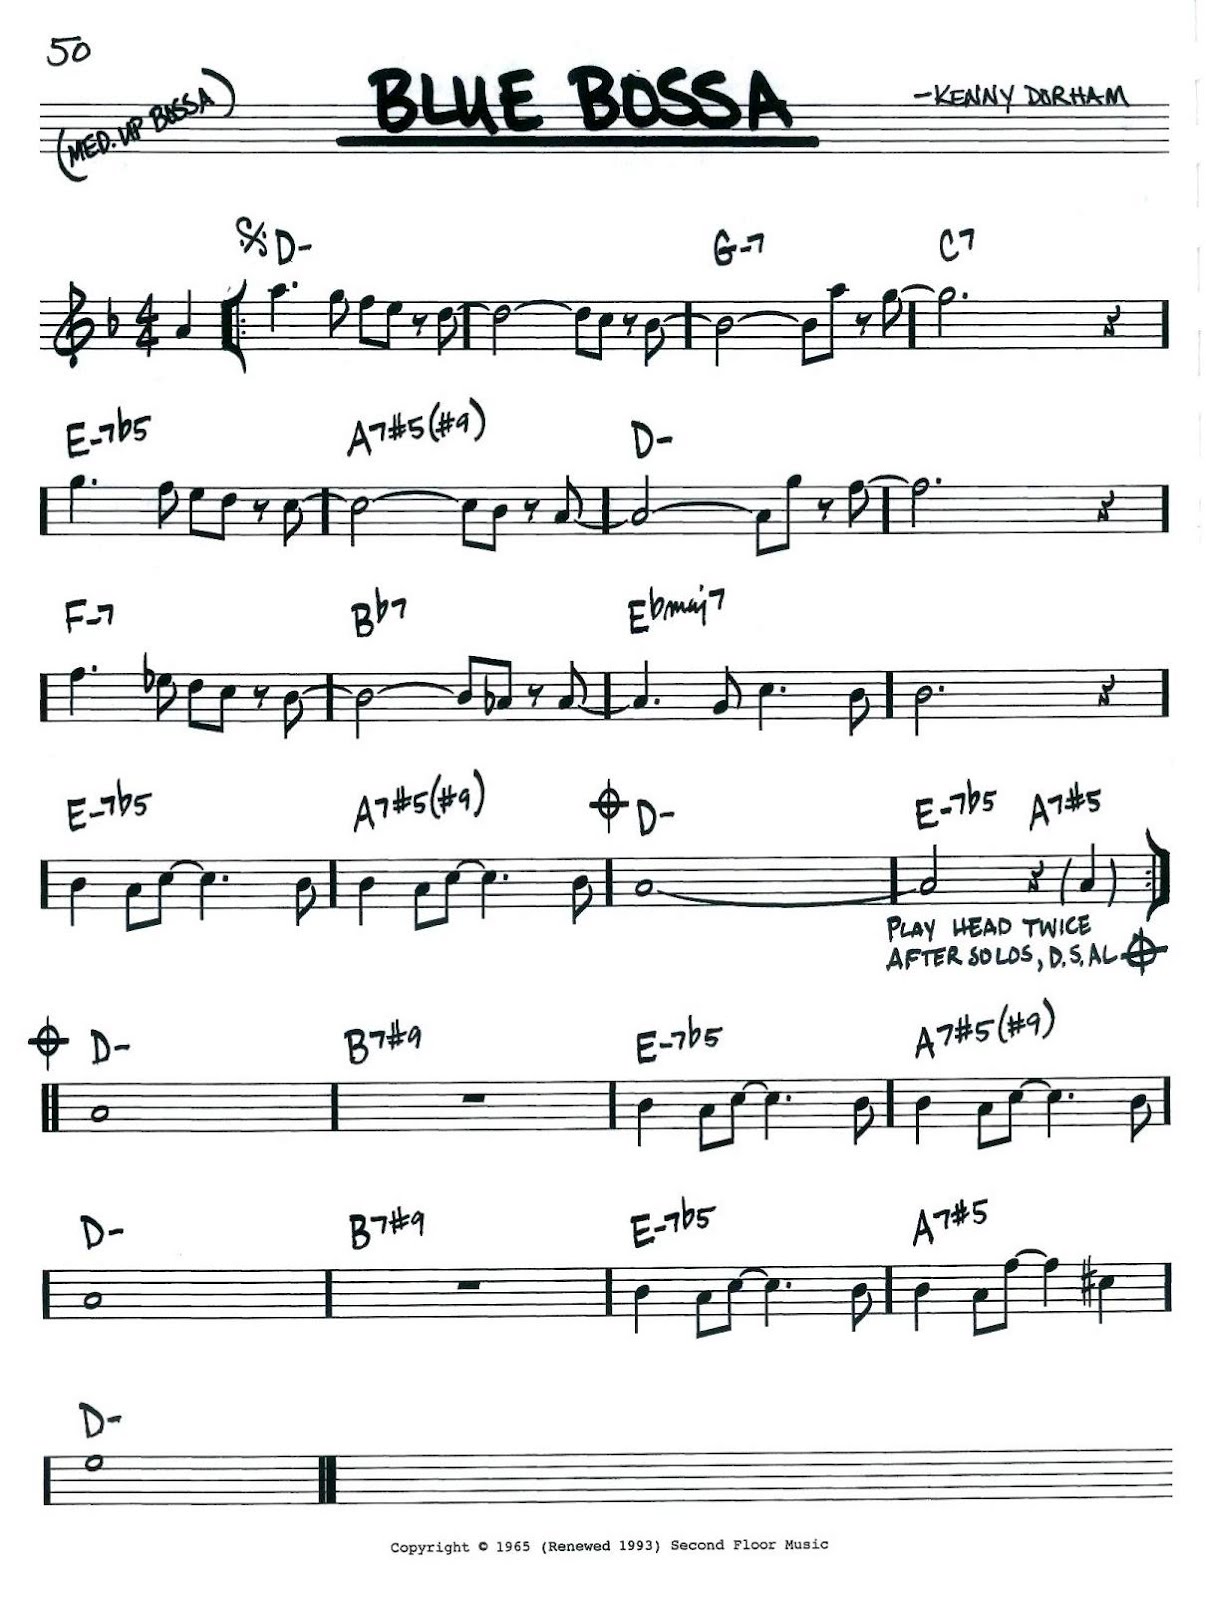 50
(MED. UP BOSSA)
BLUE BOSSA
-KENNY DORHAM
D- G-7 C7
4
4
E-7b5 A7#5(#9) D-
F-7 Bb7 Ebmaj7
E-7b5 A7#5(#9) D- E-7b5 A7#5
PLAY HEAD TWICE
AFTER SOLOS, D.S. AL
D- B7#9 E-7b5 A7#5(#9)
D- B7#9 E-7b5 A7#5
D-
Copyright © 1965 (Renewed 1993) Second Floor Music